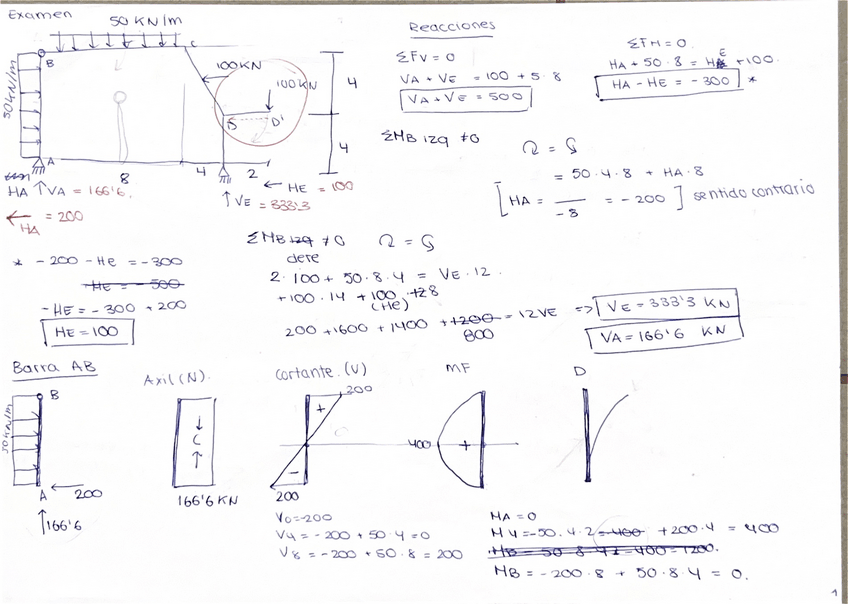 Examen
50 KN/m
Reacciones
B
C
100KN
100KN
50KN/m
D
D'
4
4
A
8
4
2
HA ↑VA = 166'6.
← HE = 100
↑VE = 333'3
← = 200
HA
ΣFV = 0
VA + VE = 100 + 5·8
VA + VE = 500
ΣFH = 0
HA + 50·8 = HE + 100.
HA - HE = -300 *
ΣMB izq ≠0
= 50·4·8 + HA·8
[HA = ___ = -200] sentido contrario
-8
* -200 - He = -300
-HE = -500
-HE = -300 + 200
HE = 100
ΣMB izq ≠0
dere
2·100 + 50·8·4 = VE·12.
+100·14 + 100·+28
(HE)
200 + 1600 + 1400 + +200 = 12VE => VE = 333'3 KN
800
VA = 166'6 KN
Barra AB
Axil (N).
Cortante (V)
MF
D
50KN/m
B
A ← 200
↑166'6
↓
C
↑
166'6 KN
200
+
-
200
V0 = -200
V4 = -200 + 50·4 = 0
V8 = -200 + 50·8 = 200
400
+
MA = 0
M4 = -50·4·2 = -400 + 200·4 = 400
MB = 50·8·4 = -400 = 1200.
MB = -200·8 + 50·8·4 = 0.
1